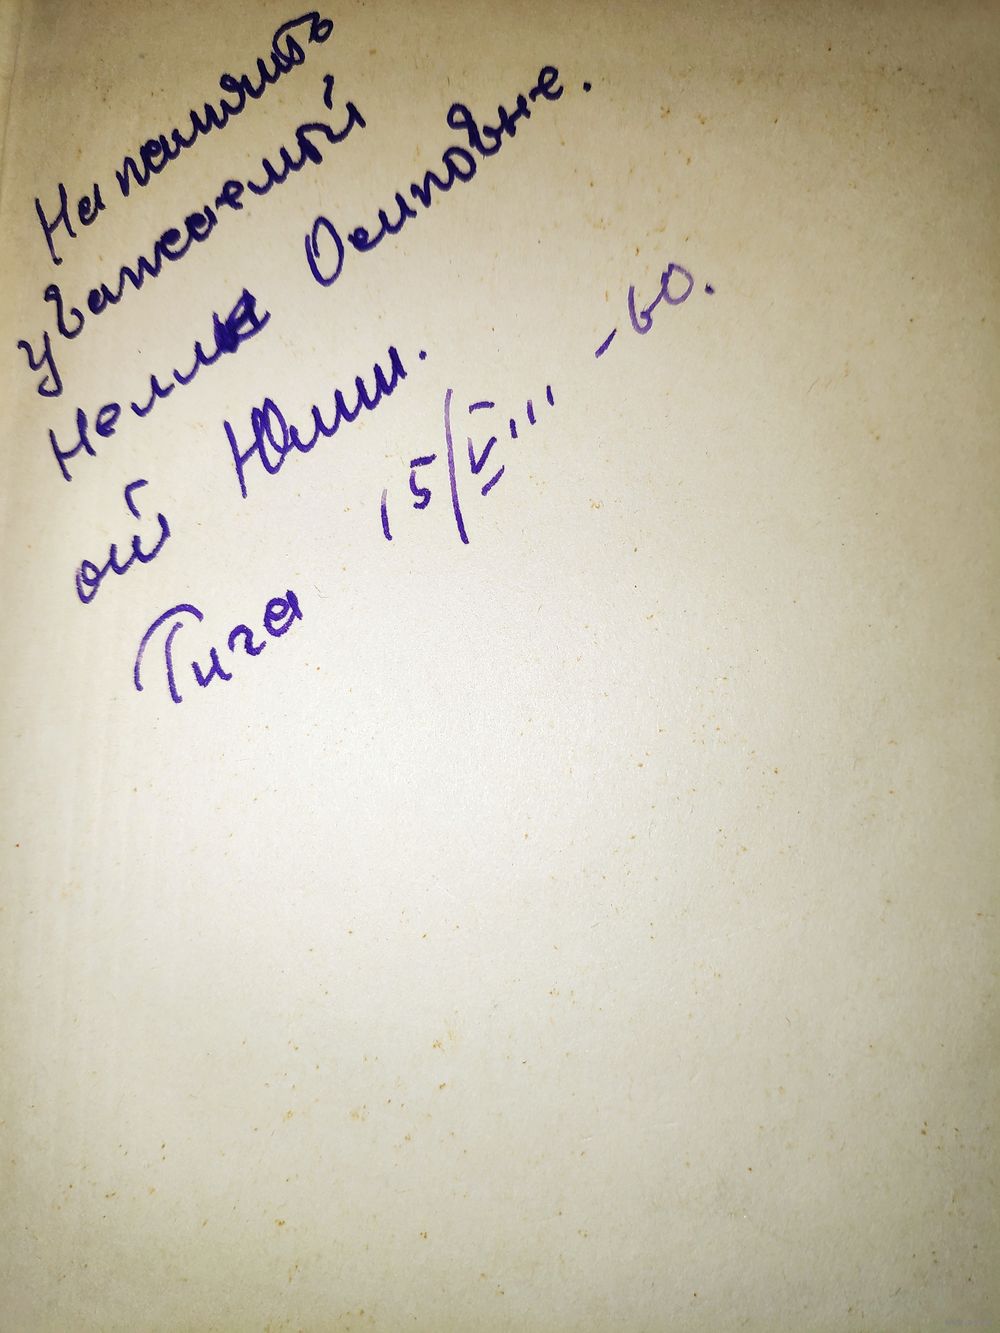 На память
уважаемой
Нелле Осиповне.
от Юлии.
Рига 15/VIII -60.